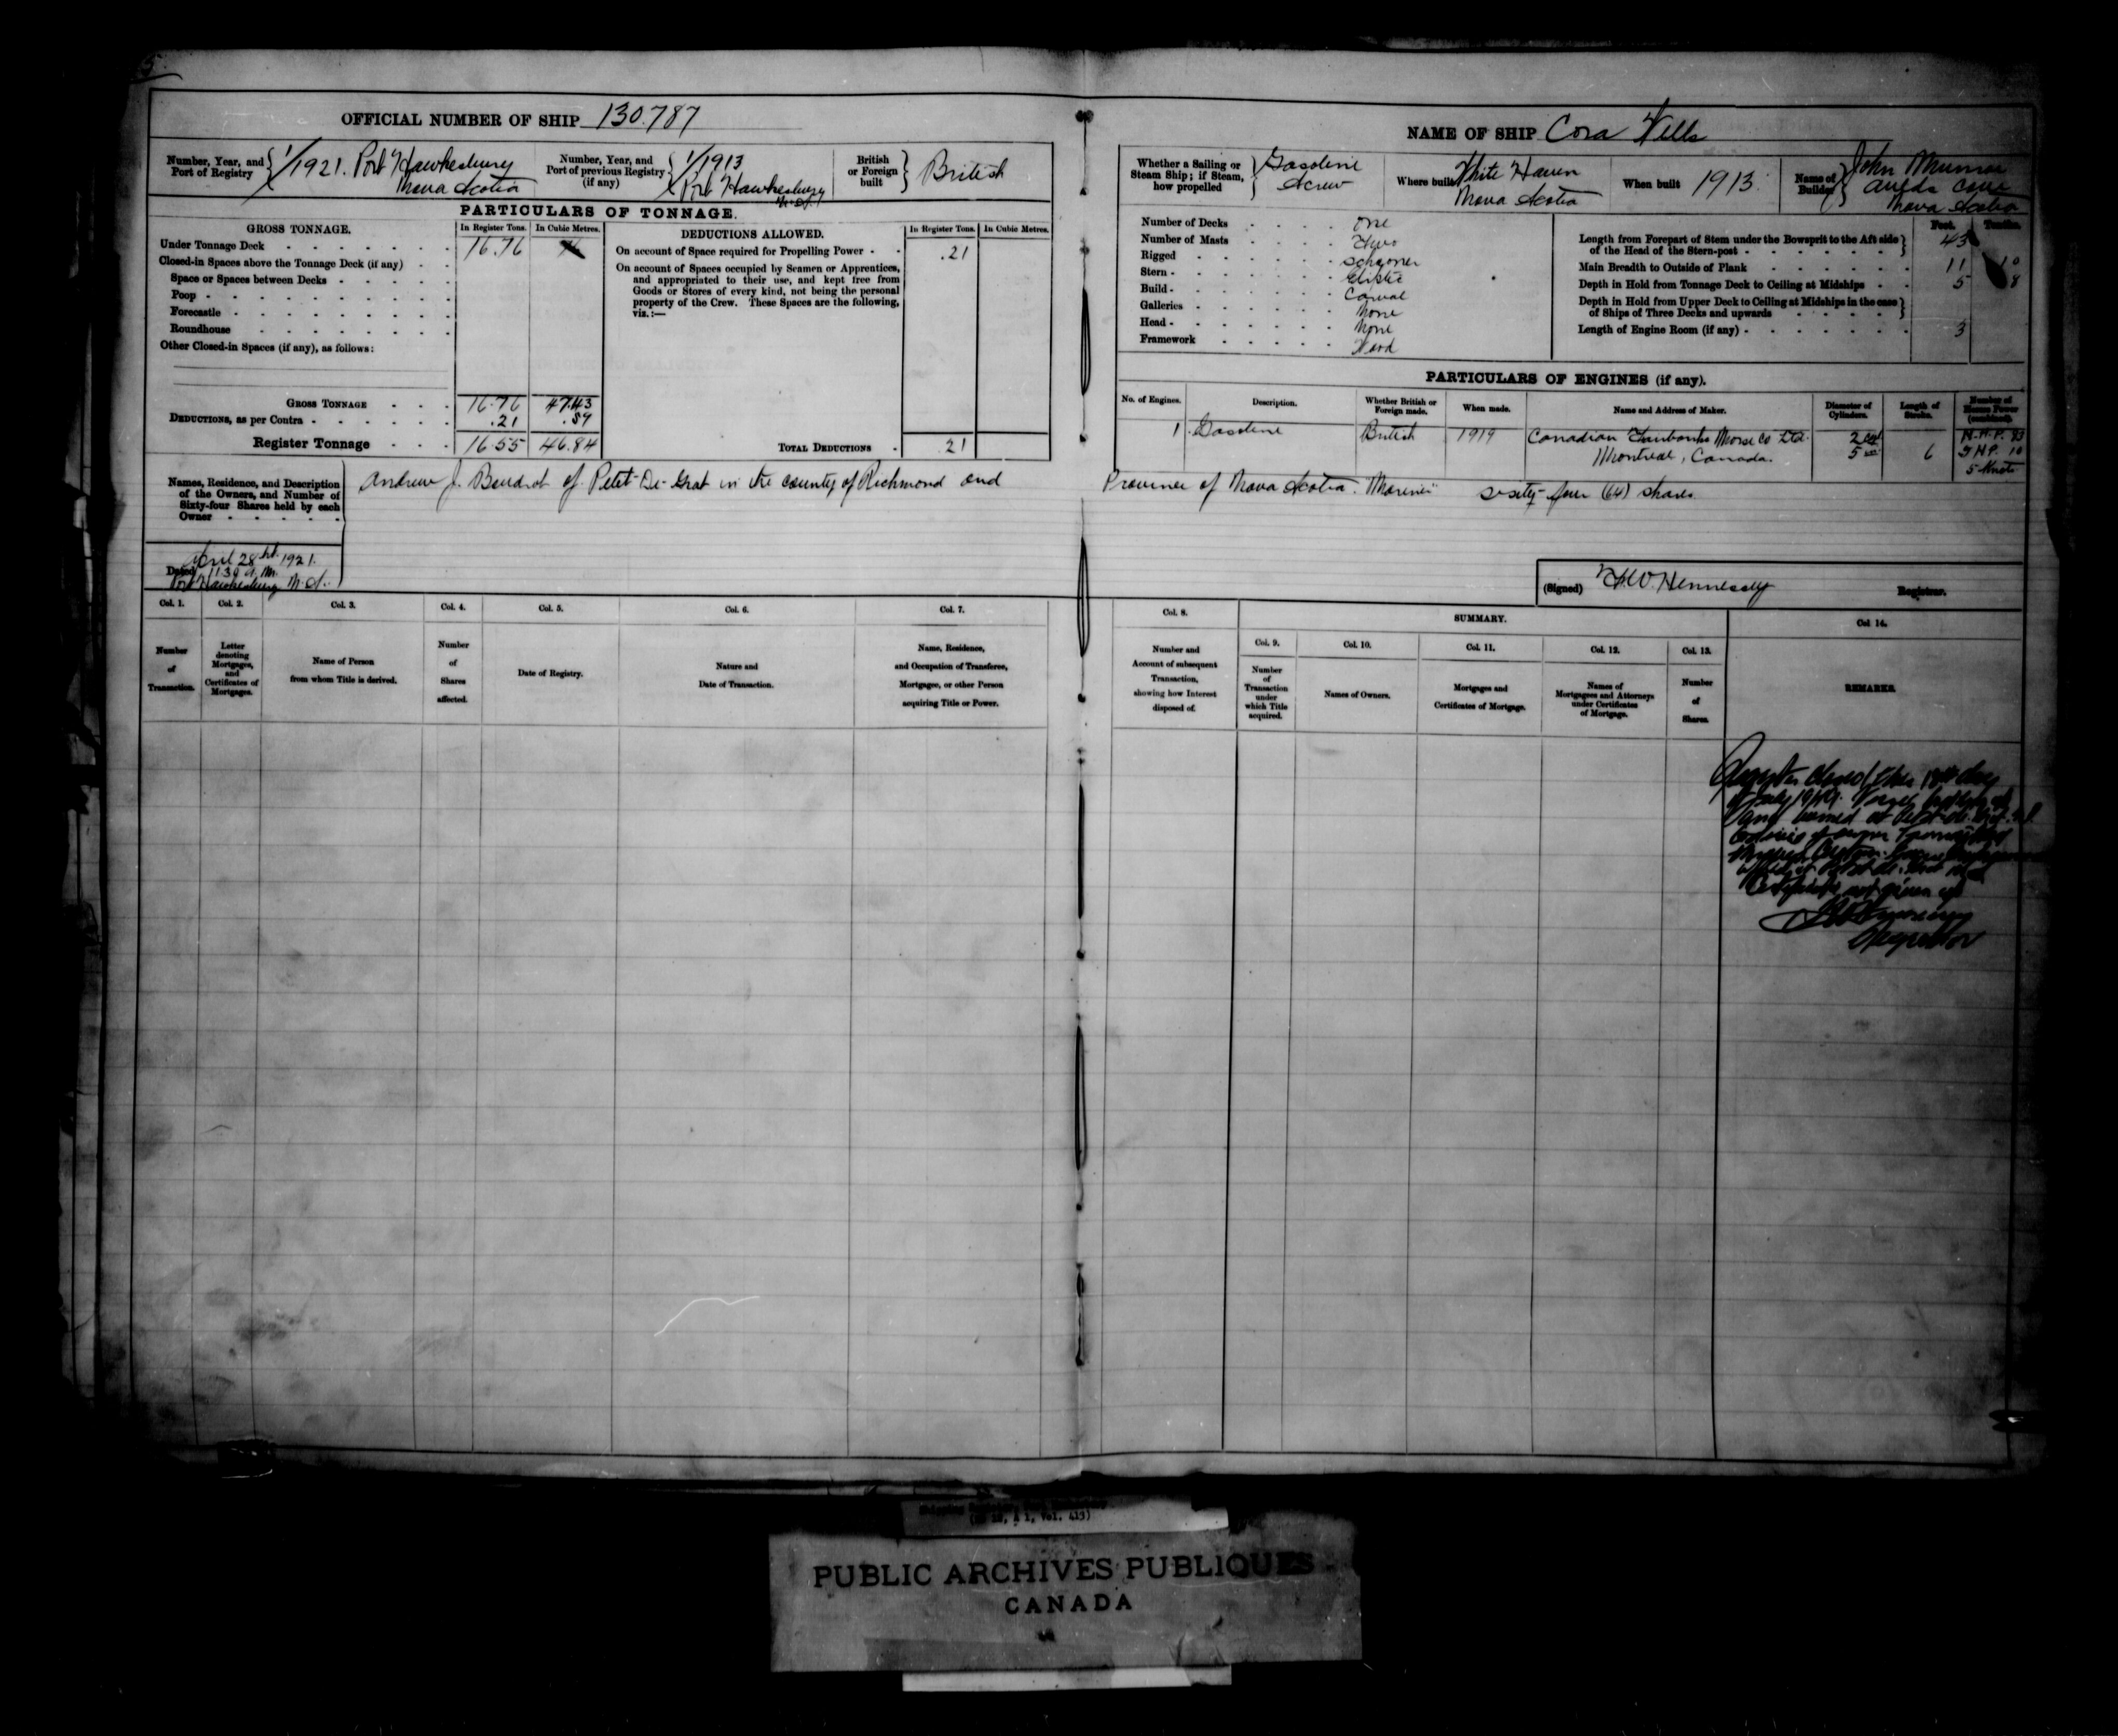 5
OFFICIAL NUMBER OF SHIP 130.787
Number, Year, and Port of Registry 1/1921. Port Hawkesbury Nova Scotia
Number, Year, and Port of previous Registry (if any) 1/1913 Port Hawkesbury N.S.
British or Foreign built British
PARTICULARS OF TONNAGE.
GROSS TONNAGE. In Register Tons. In Cubic Metres.
Under Tonnage Deck 16.76
Closed-in Spaces above the Tonnage Deck (if any)
Space or Spaces between Decks
Poop
Forecastle
Roundhouse
Other Closed-in Spaces (if any), as follows:
GROSS TONNAGE 16.76 47.43
DEDUCTIONS, as per Contra .21 .59
Register Tonnage 16.55 46.84
DEDUCTIONS ALLOWED. In Register Tons. In Cubic Metres.
On account of Space required for Propelling Power .21
On account of Spaces occupied by Seamen or Apprentices,
and appropriated to their use, and kept free from
Goods or Stores of every kind, not being the personal
property of the Crew. These Spaces are the following,
viz.:—
TOTAL DEDUCTIONS .21
NAME OF SHIP Cora Wells
Whether a Sailing or Steam Ship; if Steam, how propelled Gasoline Screw
Where built White Haven Nova Scotia
When built 1913.
Name of Builder John Munroe Cove Nova Scotia
Number of Decks One
Number of Masts Two
Rigged Schooner
Stern Eliptic
Build Carvel
Galleries None
Head None
Framework Wood
Feet. Tenths.
Length from Forepart of Stem under the Bowsprit to the Aft side
of the Head of the Stern-post 43
Main Breadth to Outside of Plank 11 10
Depth in Hold from Tonnage Deck to Ceiling at Midships 5 8
Depth in Hold from Upper Deck to Ceiling at Midships in the case
of Ships of Three Decks and upwards
Length of Engine Room (if any) 3
PARTICULARS OF ENGINES (if any).
No. of Engines. Description. Whether British or Foreign made. When made. Name and Address of Maker. Diameter of Cylinders. Length of Stroke. Number of Horse Power (combined).
1 Gasoline British 1919 Canadian Fairbanks Morse Co Ltd. 2 Cyl N.H.P.
Montreal, Canada. 5 6 I.H.P. 10
5 Knots
Names, Residence, and Description
of the Owners, and Number of
Sixty-four Shares held by each
Owner
Andrew J. Boudrot of Petit-De-Grat in the county of Richmond and Province of Nova Scotia. Mariner sixty-four (64) shares
Dated April 28th. 1921.
1130 A.M.
Port Hawkesbury N.S.
(Signed) Hennessey Registrar.
Col. 1. Number of Transaction.
Col. 2. Letter denoting Mortgages, and Certificates of Mortgages.
Col. 3. Name of Person from whom Title is derived.
Col. 4. Number of Shares affected.
Col. 5. Date of Registry.
Col. 6. Nature and Date of Transaction.
Col. 7. Name, Residence, and Occupation of Transferee, Mortgagee, or other Person acquiring Title or Power.
Col. 8. Number and Account of subsequent Transaction, showing how Interest disposed of.
SUMMARY.
Col. 9. Number of Transaction under which Title acquired.
Col. 10. Names of Owners.
Col. 11. Mortgages and Certificates of Mortgage.
Col. 12. Names of Mortgagees and Attorneys under Certificates of Mortgage.
Col. 13. Number of Shares.
Col. 14. REMARKS.
Register closed this day
of July
burned at Petit-de-Grat
Certificate not given up
Registrar
Vol. 413)
PUBLIC ARCHIVES PUBLIQUES
CANADA